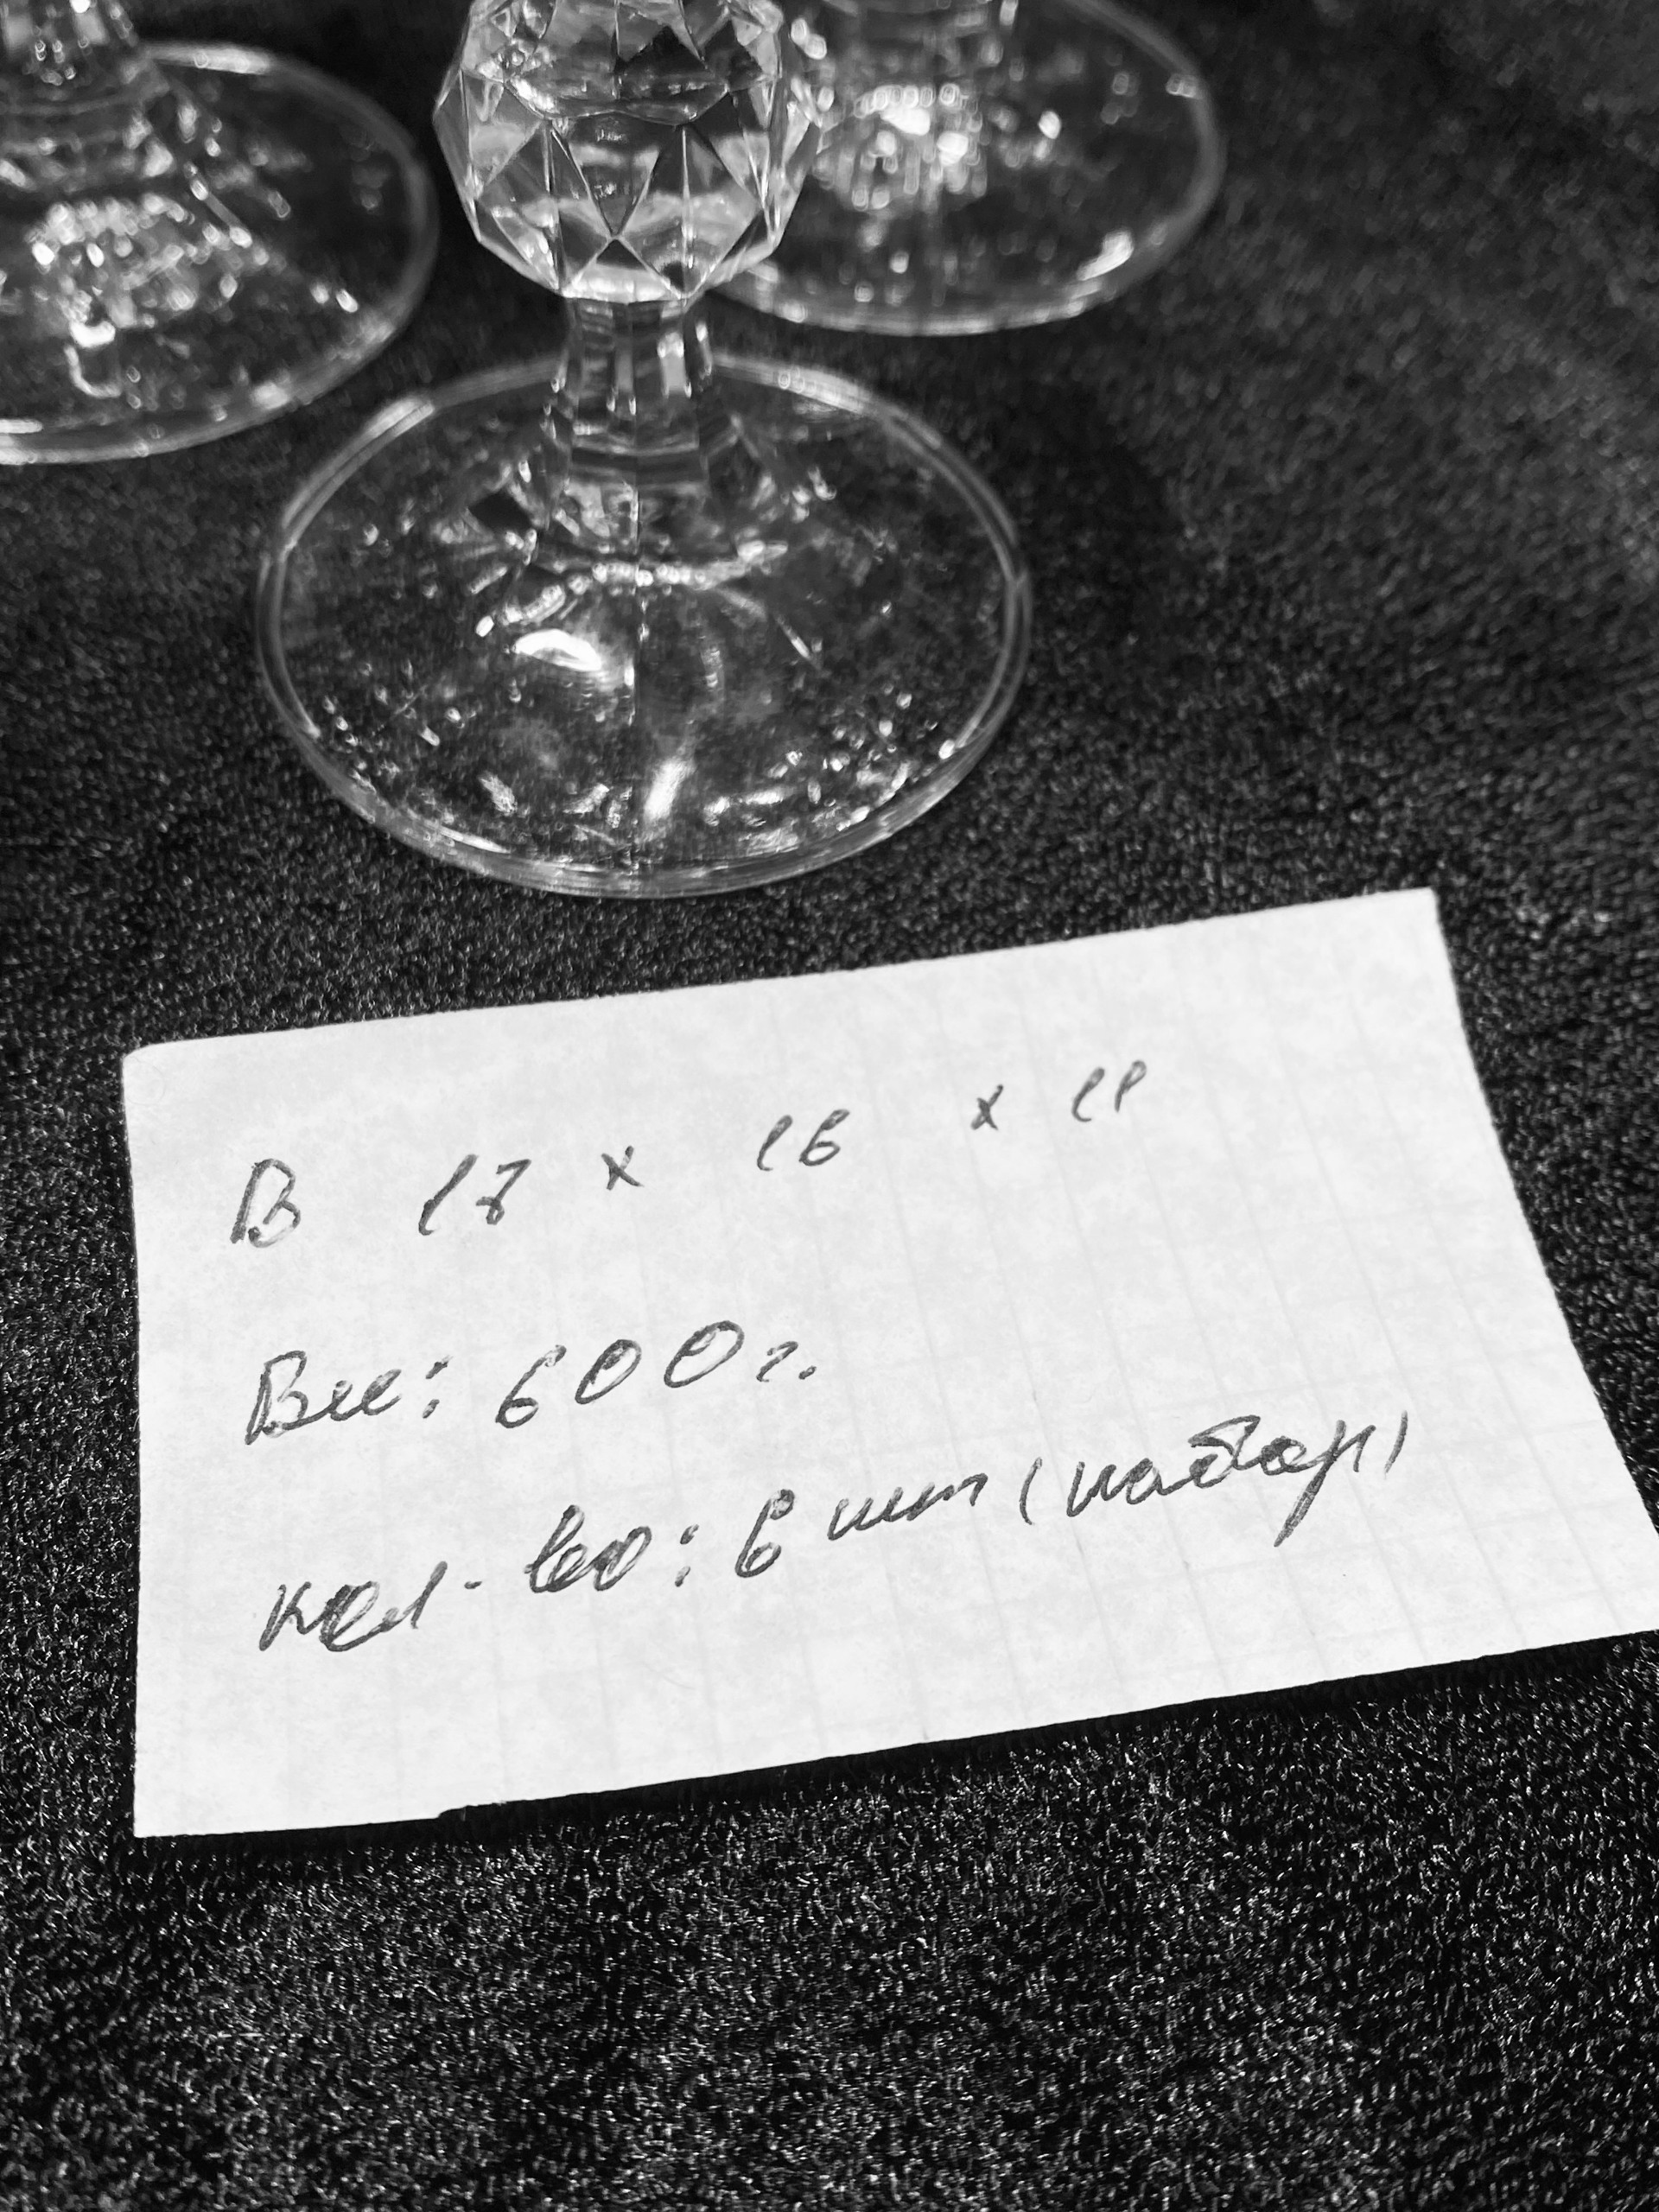 В 17 x 16 x 11
Вес: 600 г.
кол-во: 6 шт (набор)